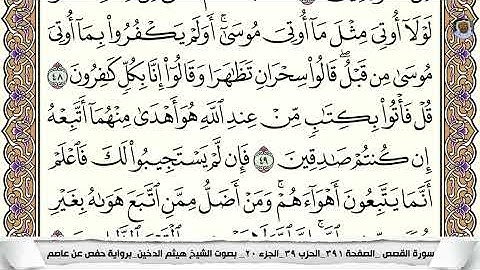 لَوْلَآ أُوتِىَ مِثْلَ مَآ أُوتِىَ مُوسَىٰٓ ۚ أَوَلَمْ يَكْفُرُوا۟ بِمَآ أُوتِىَ
مُوسَىٰ مِن قَبْلُ ۖ قَالُوا۟ سِحْرَانِ تَظَٰهَرَا وَقَالُوٓا۟ إِنَّا بِكُلٍّ كَٰفِرُونَ ٤٨
قُلْ فَأْتُوا۟ بِكِتَٰبٍ مِّنْ عِندِ ٱللَّهِ هُوَ أَهْدَىٰ مِنْهُمَآ أَتَّبِعْهُ
إِن كُنتُمْ صَٰدِقِينَ ٤٩ فَإِن لَّمْ يَسْتَجِيبُوا۟ لَكَ فَٱعْلَمْ
أَنَّمَا يَتَّبِعُونَ أَهْوَآءَهُمْ ۚ وَمَنْ أَضَلُّ مِمَّنِ ٱتَّبَعَ هَوَىٰهُ بِغَيْرِ
سورة القصص _الصفحة ٣٩١_الحزب ٣٩_الجزء ٢٠_ بصوت الشيخ هيثم الدخين_برواية حفص عن عاصم